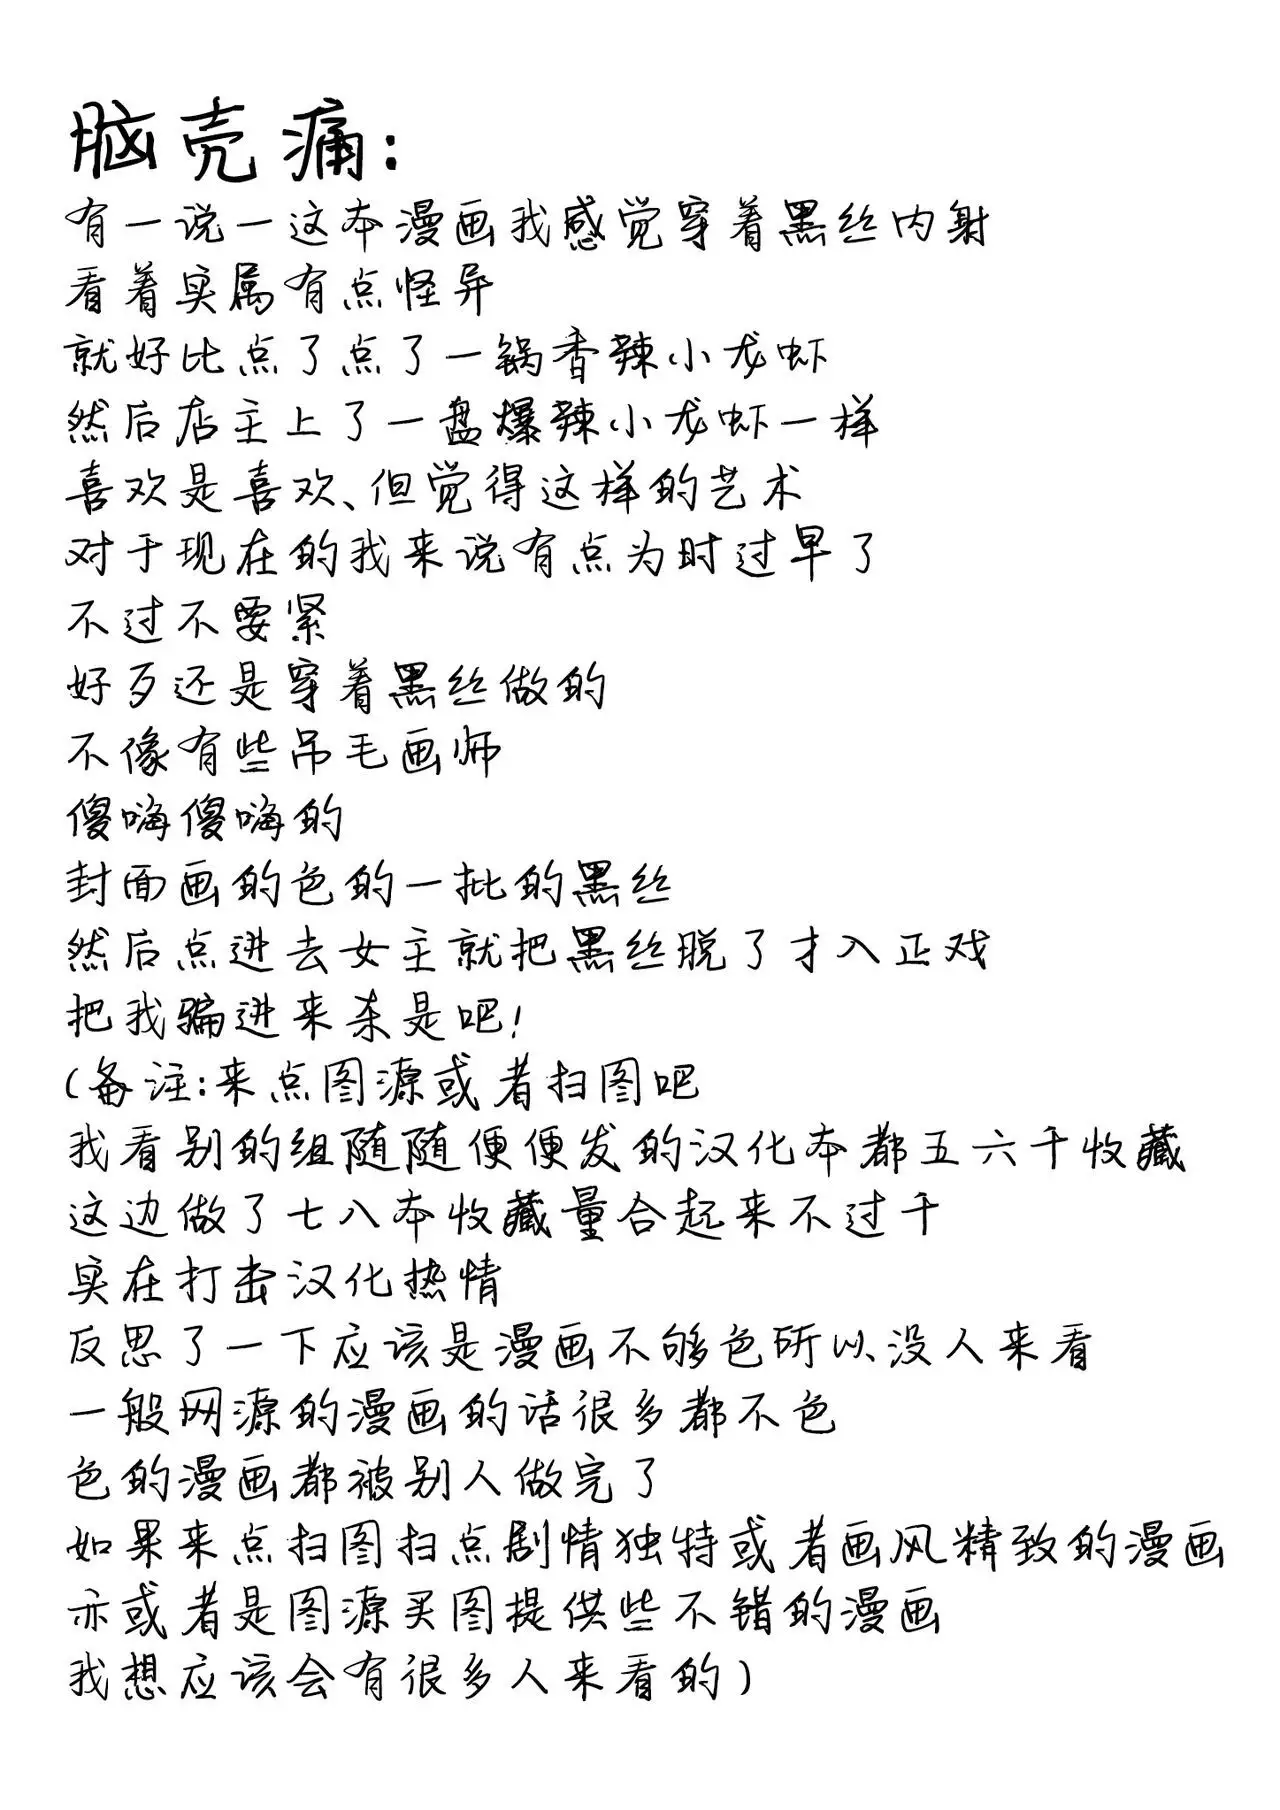 脑壳痛:
有一说一这本漫画我感觉穿着黑丝内射
看着实属有点怪异
就好比点了点了一锅香辣小龙虾
然后店主上了一盘爆辣小龙虾一样
喜欢是喜欢、但觉得这样的艺术
对于现在的我来说有点为时过早了
不过不要紧
好歹还是穿着黑丝做的
不像有些吊毛画师
傻嗨傻嗨的
封面画的色的一批的黑丝
然后点进去女主就把黑丝脱了才入正戏
把我骗进来杀是吧!
(备注:来点图源或者扫图吧
我看别的组随随便便发的汉化本都五六千收藏
这边做了七八本收藏量合起来不过千
实在打击汉化热情
反思了一下应该是漫画不够色所以没人来看
一般网源的漫画的话很多都不色
色的漫画都被别人做完了
如果来点扫图扫点剧情独特或者画风精致的漫画
亦或者是图源买图提供些不错的漫画
我想应该会有很多人来看的)